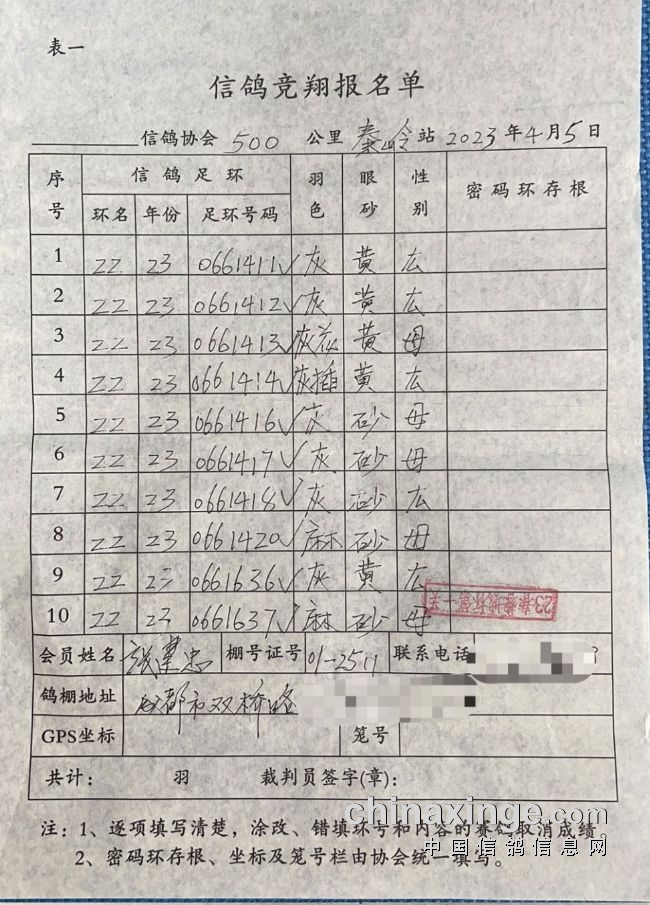 表一
信鸽竞翔报名单
信鸽协会 500 公里 秦岭 站 2023 年 4 月 5 日
序号 信鸽足环 羽色 眼砂 性别 密码环存根
环名 年份 足环号码
1 ZZ 23 0661411√ 灰 黄 厷
2 ZZ 23 0661412√ 灰 黄 厷
3 ZZ 23 0661413√ 灰花 黄 母
4 ZZ 23 0661414√ 灰插 黄 厷
5 ZZ 23 0661416√ 灰 砂 母
6 ZZ 23 0661417√ 灰 砂 母
7 ZZ 23 0661418√ 灰 砂 厷
8 ZZ 23 0661420√ 麻 砂 母
9 ZZ 23 0661636√ 灰 黄 厷
10 ZZ 23 0661637√ 麻 砂 母
会员姓名 张 忠 棚号证号 01-2511 联系电话 3
鸽棚地址 成都市双桥路
GPS坐标 笼号
共计： 羽 裁判员签字(章)：
注：1、逐项填写清楚，涂改、错填环号和内容的赛鸽取消成绩。
2、密码环存根、坐标及笼号栏由协会统一填写。
chinaxinge.com
中国信鸽信息网